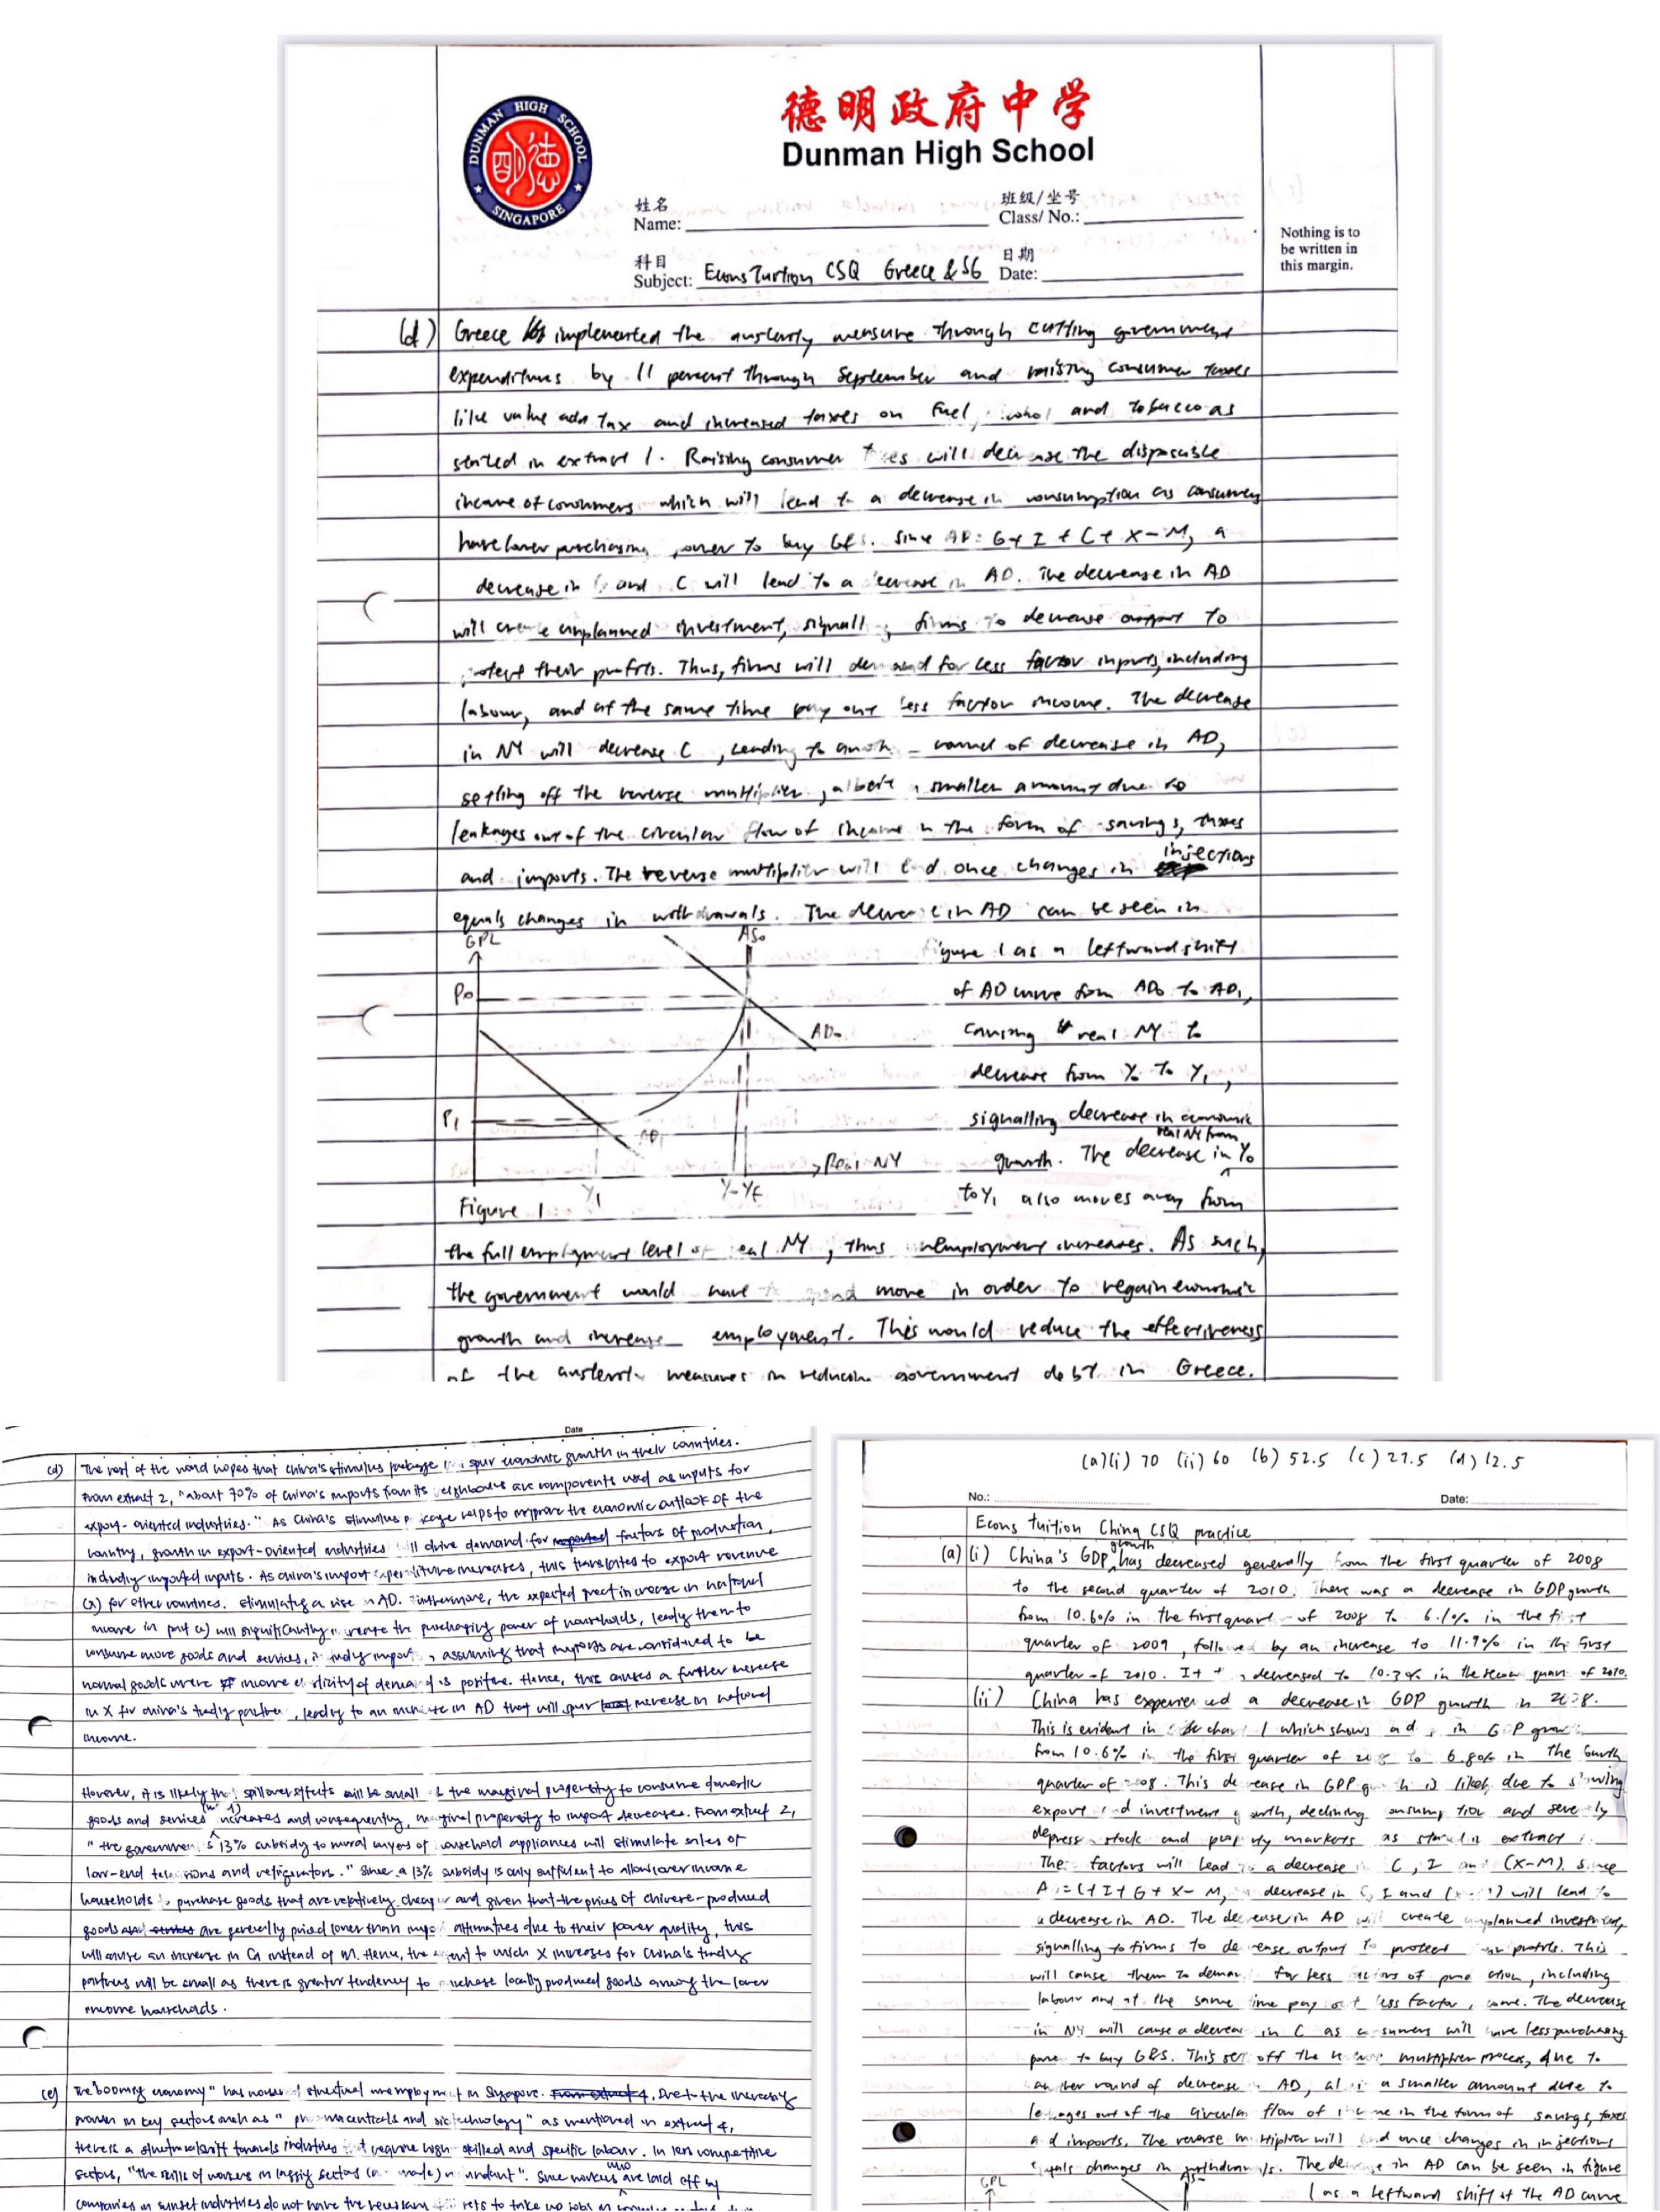 德明政府中学
Dunman High School
DUNMAN HIGH SCHOOL
SINGAPORE
姓名
Name:
班级/坐号
Class/ No.:
科目
Subject: Econs Tuition CSQ Greece & SG
日期
Date:
Nothing is to
be written in
this margin.
(d) Greece implemented the austerity measure through cutting government
expenditures by 11 percent through September and raising consumer taxes
like value add tax and increased taxes on fuel, and tobacco as
stated in extract 1. Raising consumer will decrease the disposable
income of consumers which will lead to a decrease in consumption as consumers
have lower purchasing to buy G&S. Since AD = G + I + C + X - M, a
decrease in and C will lead to a decrease in AD. The decrease in AD
will create unplanned investment, firms to decrease output to
their profits. Thus, firms will demand for less factor inputs, including
labour, and at the same time pay out less factor income. The decrease
in NY will decrease C, leading to round of decrease in AD,
setting off the reverse multiplier, albeit smaller amount due to
leakages out of the circular flow of income in the form of savings, taxes
and imports. The reverse multiplier will end once changes in injections
equals changes in withdrawals. The decrease in AD can be seen in
GPL
AS₀
figure 1 as a leftward shift
P₀
of AD curve from AD₀ to AD₁,
AD₀
causing real NY to
decrease from Y₀ to Y₁,
P₁
signalling decrease in economic
AD₁
real NY from
Real NY
growth. The decrease in Y₀
Y₁
Y₀=Yf
to Y₁ also moves away from
Figure 1
the full employment level of real NY, thus unemployment increases. As such,
the government would have to spend more in order to regain economic
growth and increase employment. This would reduce the effectiveness
of the austerity measures in reducing government debt in Greece.
Date
(d) The rest of the world hopes that china's stimulus package spur economic growth in their countries.
From extract 2, "about 70% of china's imports from its neighbours are components used as inputs for
export-oriented industries." As China's stimulus package helps to improve the economic outlook of the
country, growth in export-oriented industries will drive demand for factors of production,
including imported inputs. As china's import expenditure increases, this translates to export revenue
(X) for other countries. stimulating a rise in AD. Furthermore, the expected great increase in national
income in part c) will significantly increase the purchasing power of households, leading them to
consume more goods and services, including imports, assuming that imports are considered to be
normal goods where income elasticity of demand is positive. Hence, this causes a further increase
in X for china's trading partner, leading to an increase in AD that will spur increase in national
income.
However, it is likely the spillover effects will be small as the marginal propensity to consume domestic
goods and services increases and consequently, marginal propensity to import decreases. From extract 2,
"the government's 13% subsidy to rural buyers of household appliances will stimulate sales of
low-end televisions and refrigerators." Since a 13% subsidy is only sufficient to allow lower income
households to purchase goods that are relatively cheaper and given that the prices of chinese-produced
goods are generally priced lower than alternatives due to their poorer quality, this
will cause an increase in Cd instead of M. Hence, the extent to which X increases for China's trading
partners will be small as there is greater tendency to purchase locally produced goods among the lower
income households.
(e) The booming economy" has structural unemployment in Singapore. Due to the increasing
growth in key sectors such as "pharmaceuticals and biotechnology" as mentioned in extract 4,
there is a structural shift towards industries that require high-skilled and specific labour. In less competitive
sectors, "the skills of workers in lagging sectors (are made) redundant". Since workers who are laid off by
companies in sunset industries do not have the necessary skills to take up jobs in
(a)(i) 70 (ii) 60 (b) 52.5 (c) 27.5 (d) 12.5
No.:
Date:
Econs Tuition China CSQ practice
(a)(i) China's GDP growth has decreased generally from the first quarter of 2008
to the second quarter of 2010. There was a decrease in GDP growth
from 10.6% in the first quarter of 2008 to 6.1% in the first
quarter of 2009, followed by an increase to 11.9% in the first
quarter of 2010. It decreased to 10.3% in the second quarter of 2010.
(ii) China has experienced a decrease in GDP growth in 2008.
This is evident in chart 1 which shows in GDP growth
from 10.6% in the first quarter of 2008 to 6.8% in the fourth
quarter of 2008. This decrease in GDP growth is likely due to slowing
export and investment growth, declining consumption and severely
depressed stock and property markets as stated in extract 1.
The factors will lead to a decrease in C, I and (X-M). Since
AD = C + I + G + X - M, a decrease in C, I and (X-M) will lead to
a decrease in AD. The decrease in AD will create unplanned investment,
signalling to firms to decrease output to protect their profits. This
will cause them to demand for less factors of production, including
labour and at the same time pay out less factor income. The decrease
in NY will cause a decrease in C as consumers will have less purchasing
power to buy G&S. This set off the reverse multiplier process, due to
another round of decrease in AD, albeit a smaller amount due to
leakages out of the circular flow of income in the form of savings, taxes
and imports. The reverse multiplier will end once changes in injections
equals changes in withdrawals. The decrease in AD can be seen in figure
GPL
AS
1 as a leftward shift of the AD curve